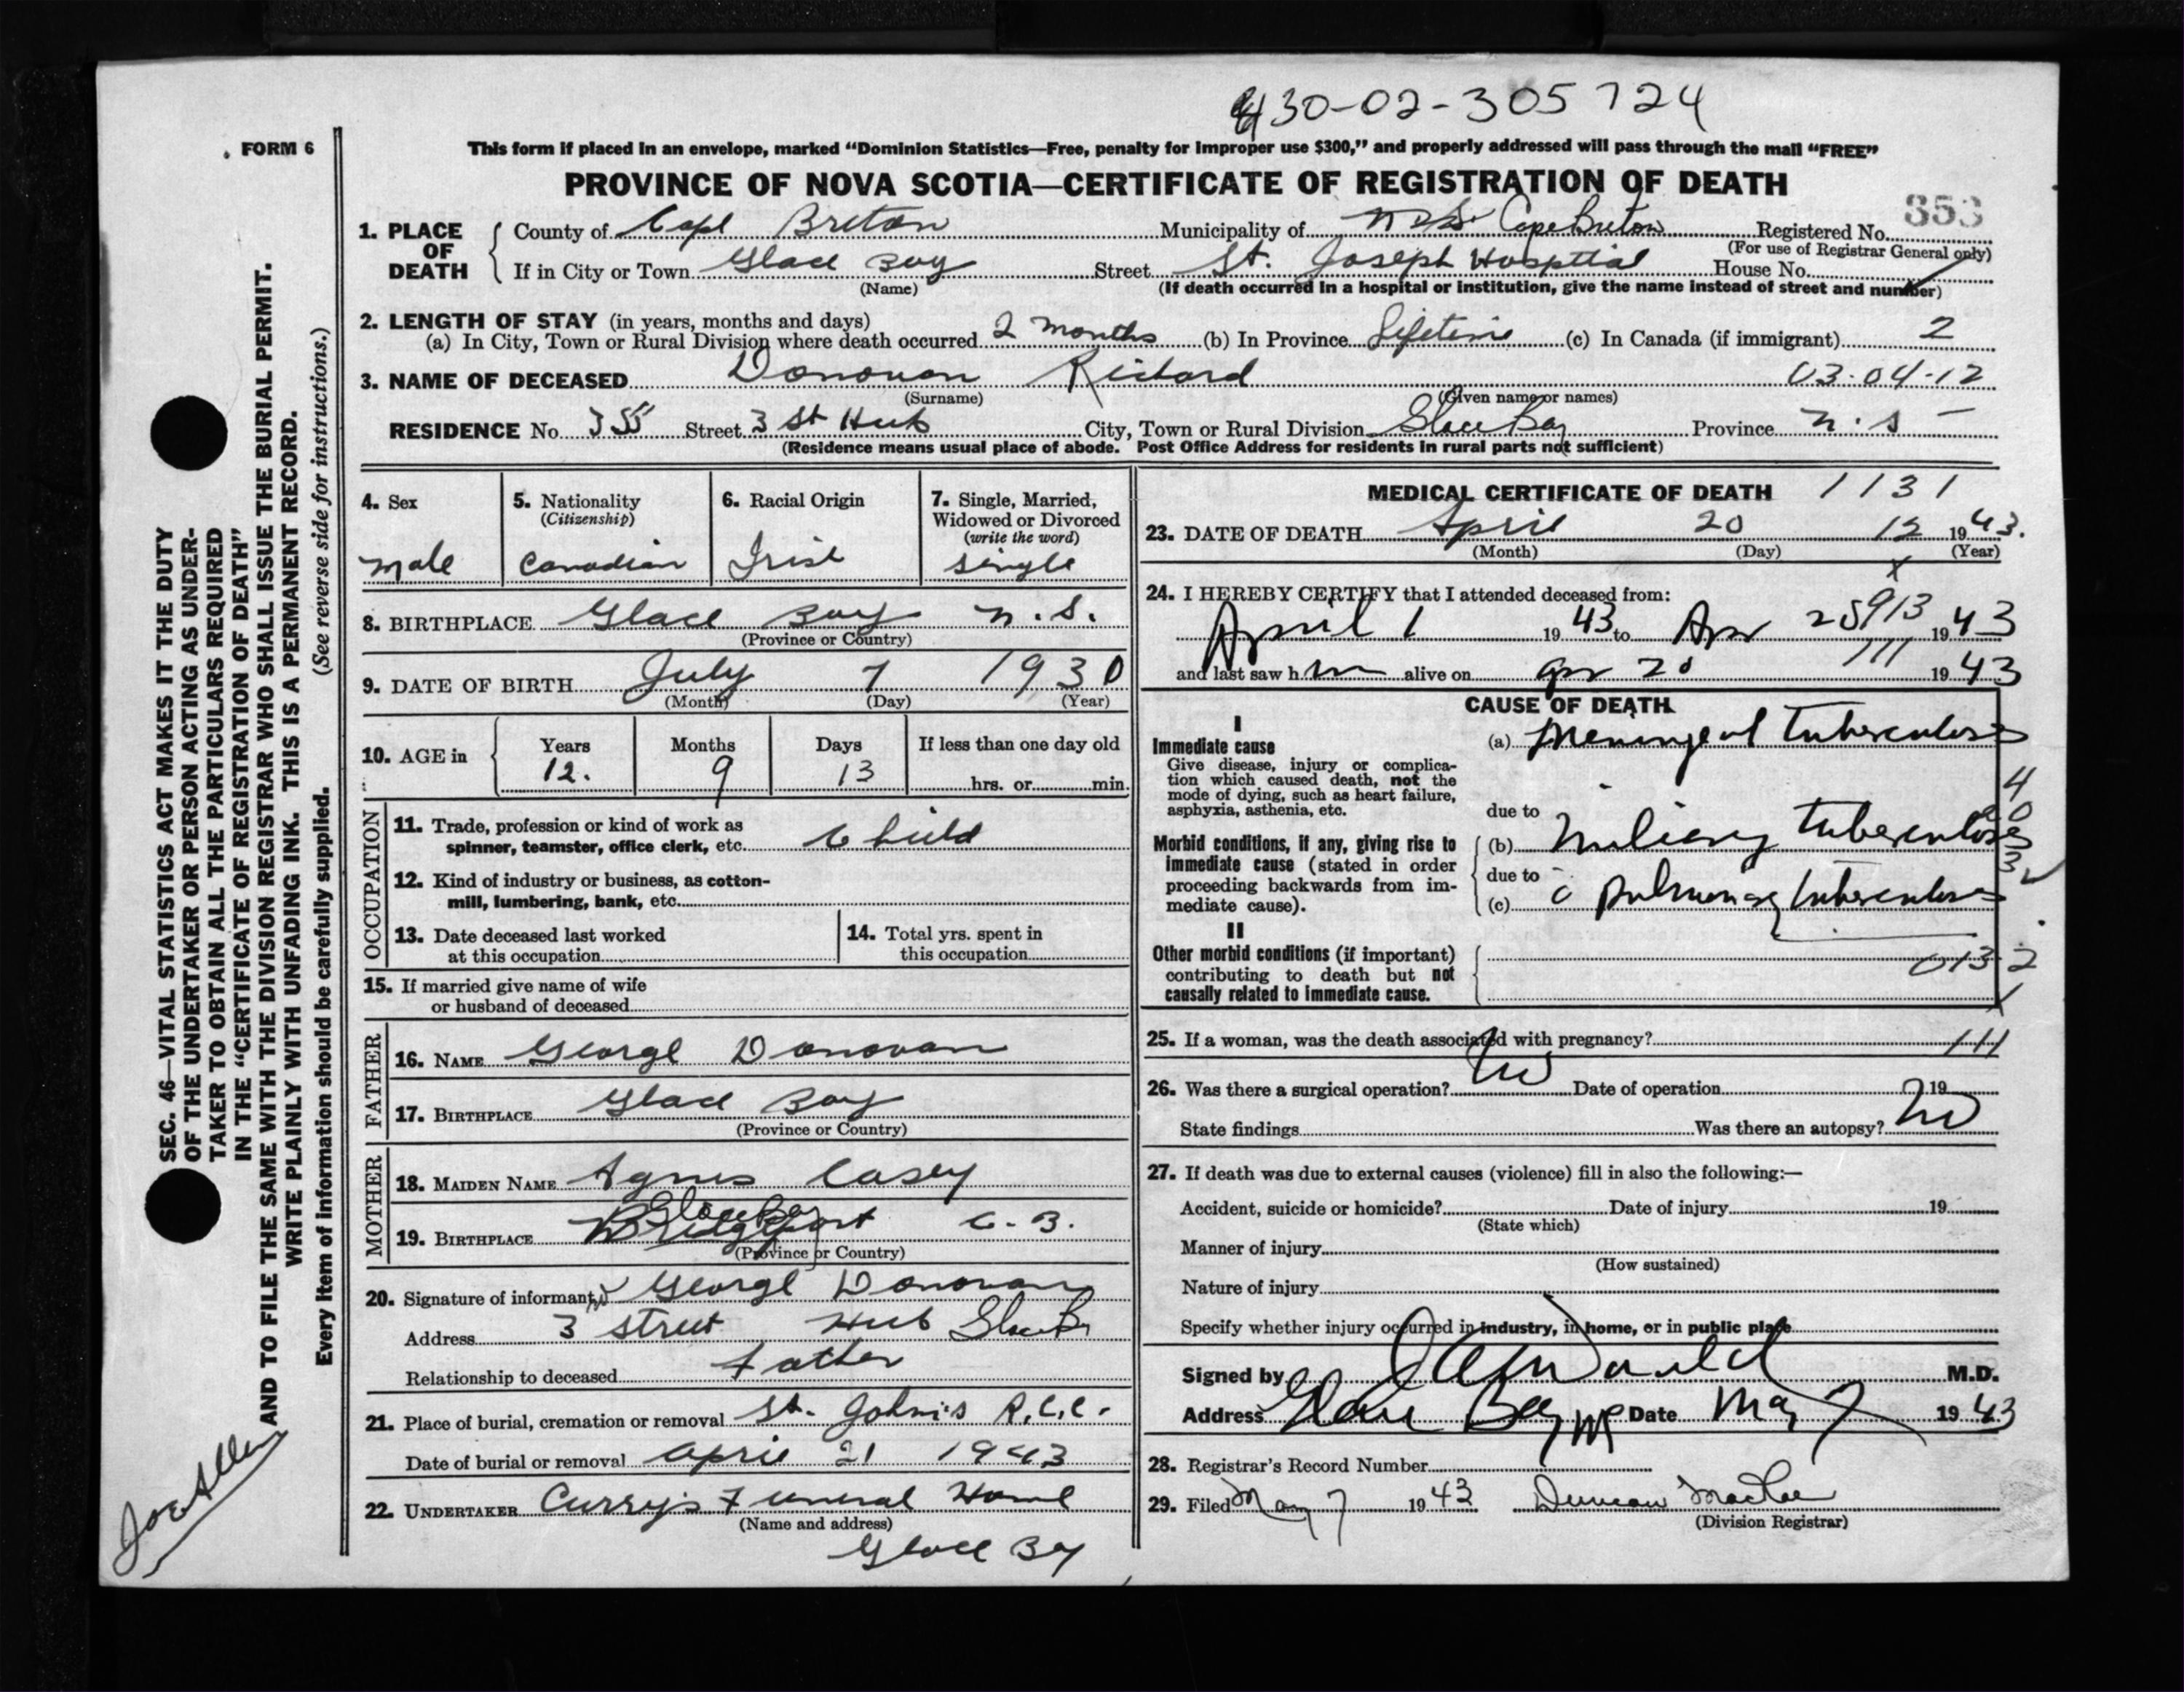 430-02-305724
FORM 6
This form if placed in an envelope, marked "Dominion Statistics—Free, penalty for improper use $300," and properly addressed will pass through the mail "FREE"
PROVINCE OF NOVA SCOTIA—CERTIFICATE OF REGISTRATION OF DEATH
353
1. PLACE OF DEATH
County of Cape Breton Municipality of Cape Breton Registered No.
(For use of Registrar General only)
If in City or Town Glace Bay Street St. Joseph Hospital House No.
(Name) (If death occurred in a hospital or institution, give the name instead of street and number)
2. LENGTH OF STAY (in years, months and days)
(a) In City, Town or Rural Division where death occurred 2 months (b) In Province Lifetime (c) In Canada (if immigrant) 2
3. NAME OF DECEASED Donovan Richard 03-04-12
(Surname) (Given name or names)
RESIDENCE No. 355 Street 3 St Hub City, Town or Rural Division Glace Bay Province N.S
(Residence means usual place of abode. Post Office Address for residents in rural parts not sufficient)
4. Sex
male
5. Nationality
(Citizenship)
Canadian
6. Racial Origin
Irish
7. Single, Married,
Widowed or Divorced
(write the word)
single
8. BIRTHPLACE Glace Bay N.S.
(Province or Country)
9. DATE OF BIRTH July 7 1930
(Month) (Day) (Year)
10. AGE in
Years Months Days If less than one day old
12. 9 13
hrs. or min.
OCCUPATION
11. Trade, profession or kind of work as
spinner, teamster, office clerk, etc. Child
12. Kind of industry or business, as cotton-
mill, lumbering, bank, etc.
13. Date deceased last worked
at this occupation
14. Total yrs. spent in
this occupation
15. If married give name of wife
or husband of deceased
FATHER
16. NAME George Donovan
17. BIRTHPLACE Glace Bay
(Province or Country)
MOTHER
18. MAIDEN NAME Agnes Casey
Glace Bay
19. BIRTHPLACE Bridgeport C.B.
(Province or Country)
20. Signature of informant George Donovan
Address 3 Street Hub Glace Bay
Relationship to deceased Father
21. Place of burial, cremation or removal St. John's R.C.C.
Date of burial or removal April 21 1943
22. UNDERTAKER Curry's Funeral Home
(Name and address)
Glace Bay
MEDICAL CERTIFICATE OF DEATH 1131
23. DATE OF DEATH April 20 12 1943.
(Month) (Day) (Year)
x
24. I HEREBY CERTIFY that I attended deceased from:
913
April 1 1943 to Apr 1943
and last saw him alive on Apr 20 111 1943
CAUSE OF DEATH
I
Immediate cause
Give disease, injury or complica-
tion which caused death, not the
mode of dying, such as heart failure,
asphyxia, asthenia, etc.
(a) Meningeal Tuberculosis
due to
Morbid conditions, if any, giving rise to
immediate cause (stated in order
proceeding backwards from im-
mediate cause).
(b) Miliary tuberculosis
due to
(c) pulmonary tuberculosis
II
Other morbid conditions (if important)
contributing to death but not
causally related to immediate cause.
013 2
25. If a woman, was the death associated with pregnancy? 111
26. Was there a surgical operation? No Date of operation 19
State findings Was there an autopsy? No
27. If death was due to external causes (violence) fill in also the following:—
Accident, suicide or homicide? Date of injury 19
(State which)
Manner of injury
(How sustained)
Nature of injury
Specify whether injury occurred in industry, in home, or in public place
Signed by M.D.
Address Glace Bay Date May 7 1943
28. Registrar's Record Number
29. Filed May 7 1943 Duncan MacRae
(Division Registrar)
SEC. 46—VITAL STATISTICS ACT MAKES IT THE DUTY
OF THE UNDERTAKER OR PERSON ACTING AS UNDER-
TAKER TO OBTAIN ALL THE PARTICULARS REQUIRED
IN THE "CERTIFICATE OF REGISTRATION OF DEATH"
AND TO FILE THE SAME WITH THE DIVISION REGISTRAR WHO SHALL ISSUE THE BURIAL PERMIT.
WRITE PLAINLY WITH UNFADING INK. THIS IS A PERMANENT RECORD.
Every item of information should be carefully supplied. (See reverse side for instructions.)